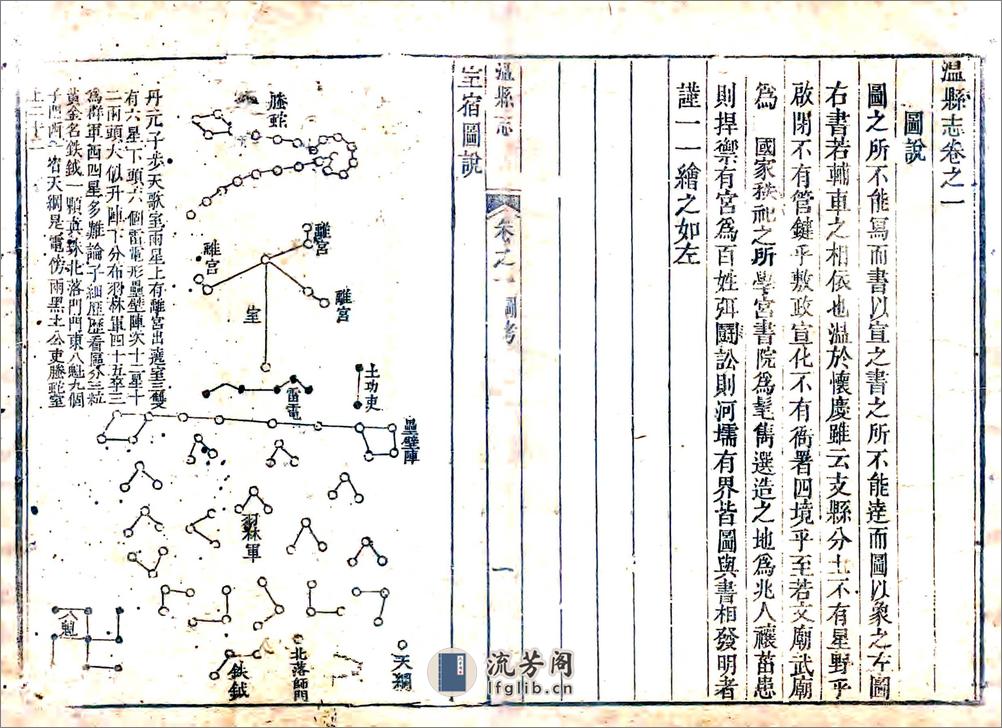 溫縣志卷之一
圖說
圖之所不能寫而書以宣之書之所不能達而圖以象之左圖
右書若輔車之相依也溫於懷慶雖云支縣分土不有星野乎
啟閉不有管鍵乎敷政宣化不有衙署四境乎至若文廟武廟
為 國家秩祀之所學宮書院為髦雋選造之地為兆人禳菑患
則捍禦有宮為百姓弭鬭訟則河壖有界皆圖與書相發明者
謹一一繪之如左
溫縣志
卷之一
圖考
一
室宿圖說
螣蛇
離宮
離宮
離宮
室
土功吏
雷電
壘壁陣
羽林軍
八魁
鈇鉞
北落師門
天綱
丹元子步天歌室兩星上有離宮出遶室三雙
有六星下頭六個雷電形壘壁陣次十二星十
二兩頭大似升陣下分布羽林軍四十五卒三
為群軍西四星多難論子細歷歷看區分三粒
黃金名鈇鉞一顆真珠北落門門東八魁九個
子門西一宿天綱是電傍兩黑土公吏螣蛇室
上二十二
流芳阁
lfglib.cn